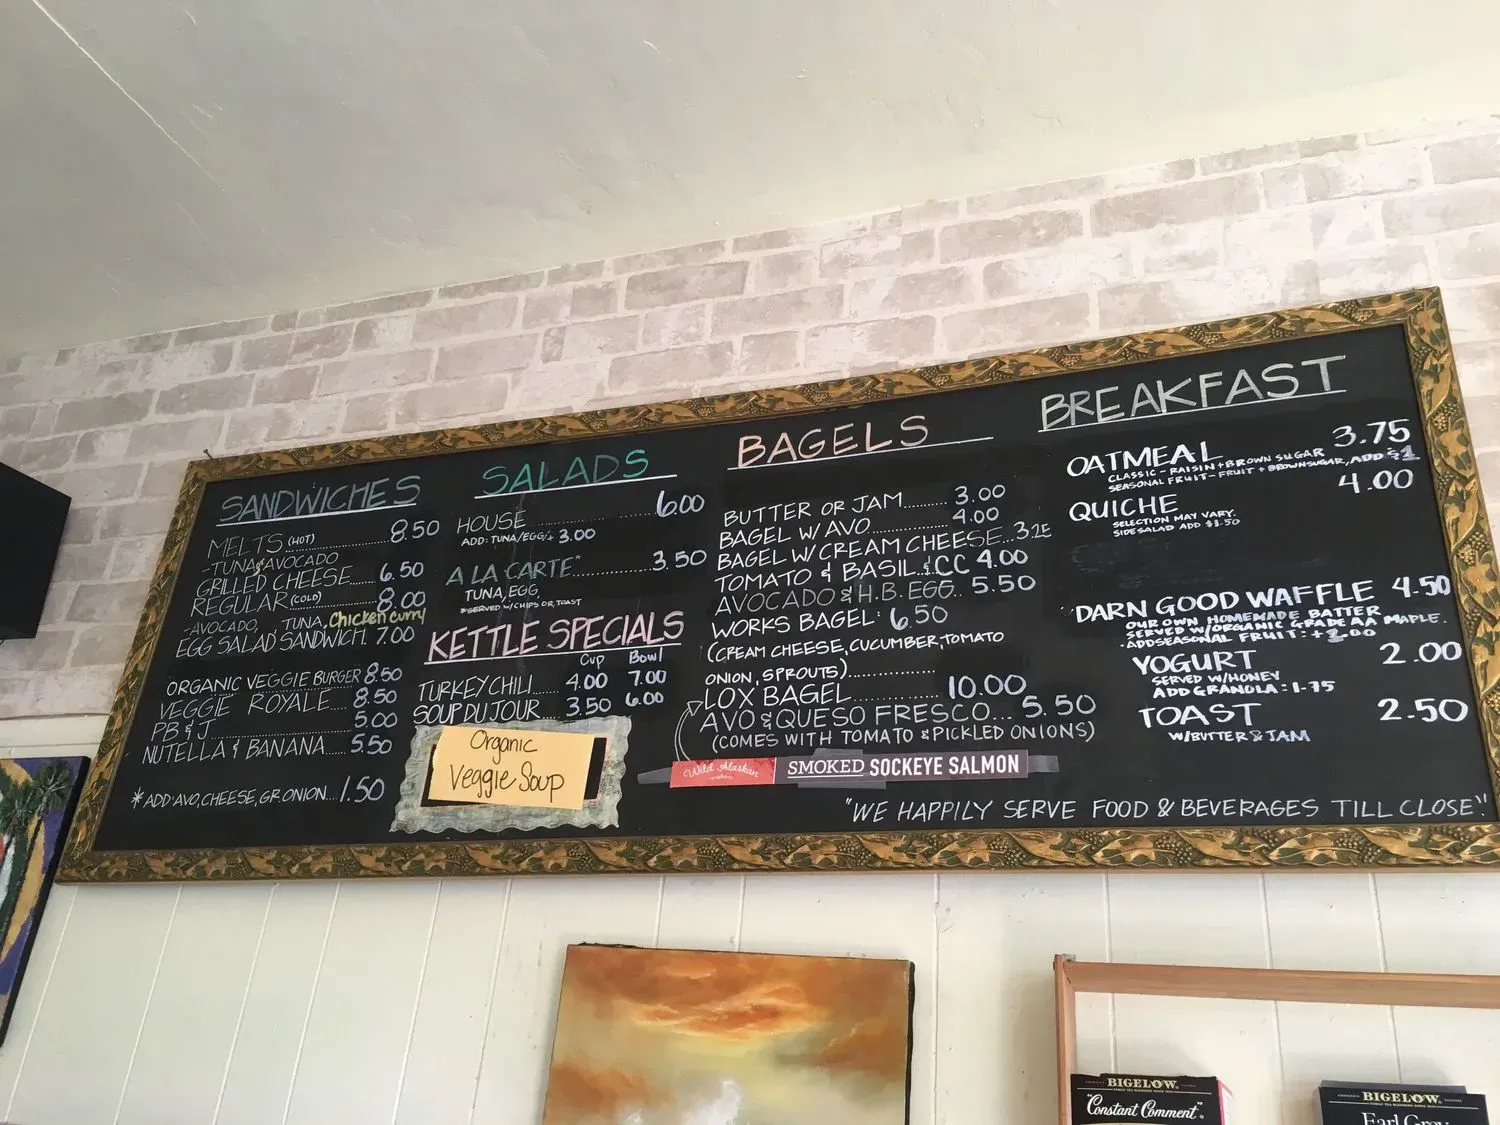 SANDWICHES
MELTS (HOT) 8.50
-TUNA & AVOCADO
GRILLED CHEESE 6.50
REGULAR (COLD) 8.00
-AVOCADO, TUNA, Chicken curry
EGG SALAD SANDWICH. 7.00
ORGANIC VEGGIE BURGER 8.50
VEGGIE ROYALE 8.50
PB & J 5.00
NUTELLA & BANANA 5.50
*ADD AVO, CHEESE, GR. ONION... 1.50
SALADS
HOUSE 6.00
ADD: TUNA/EGG/+ 3.00
A LA CARTE* 3.50
TUNA, EGG
*SERVED W/CHIPS OR TOAST
KETTLE SPECIALS
Cup Bowl
TURKEY CHILI 4.00 7.00
SOUP DU JOUR 3.50 6.00
Organic
Veggie Soup
BAGELS
BUTTER OR JAM 3.00
BAGEL W/ AVO 4.00
BAGEL W/ CREAM CHEESE...3.25
TOMATO & BASIL & CC 4.00
AVOCADO & H.B. EGG.. 5.50
WORKS BAGEL: 6.50
(CREAM CHEESE, CUCUMBER, TOMATO
ONION, SPROUTS)
LOX BAGEL 10.00
AVO & QUESO FRESCO... 5.50
(COMES WITH TOMATO & PICKLED ONIONS)
Wild Alaskan SMOKED SOCKEYE SALMON
BREAKFAST
OATMEAL 3.75
CLASSIC - RAISIN + BROWN SUGAR
SEASONAL FRUIT - FRUIT + BROWN SUGAR, ADD $1
QUICHE 4.00
SELECTION MAY VARY.
SIDE SALAD ADD $1.50
DARN GOOD WAFFLE 4.50
OUR OWN HOMEMADE BATTER
SERVED W/ORGANIC GRADE AA MAPLE.
-ADD SEASONAL FRUIT: +2.00
YOGURT 2.00
SERVED W/HONEY
ADD GRANOLA: 1.75
TOAST 2.50
W/BUTTER & JAM
"WE HAPPILY SERVE FOOD & BEVERAGES TILL CLOSE"
BIGELOW
"Constant Comment"
BIGELOW
Earl Grey